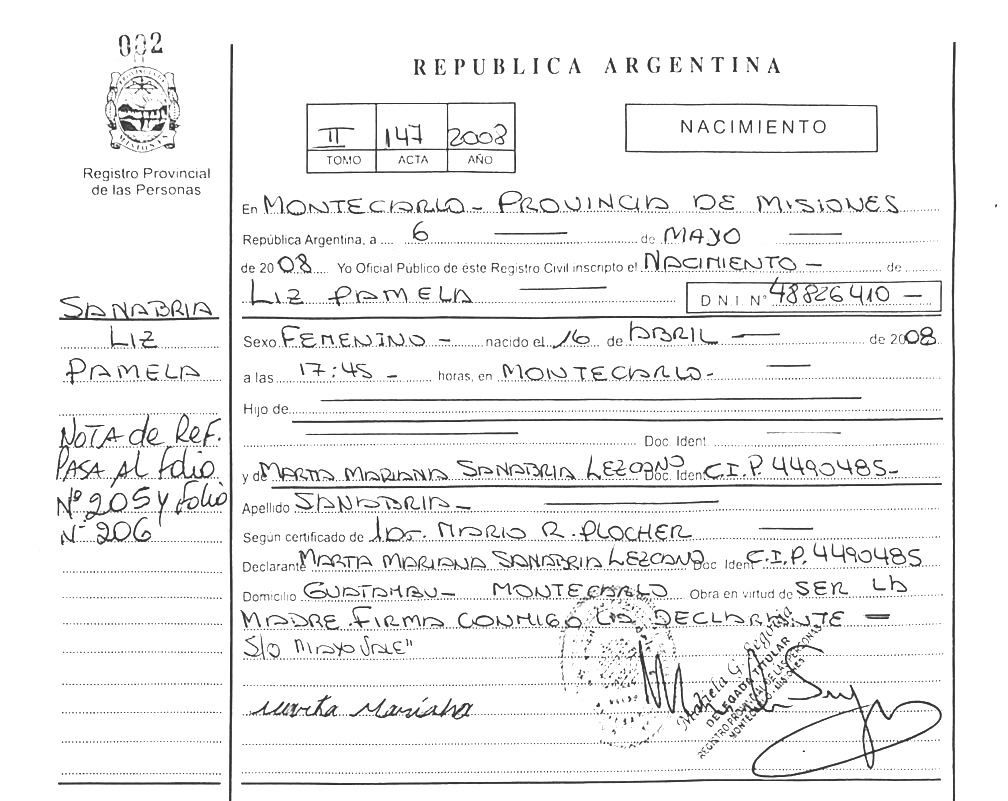 002
PROVINCIA DE
MISIONES
Registro Provincial
de las Personas
REPUBLICA ARGENTINA
II 147 2008
TOMO ACTA AÑO
NACIMIENTO
En MONTECARLO - PROVINCIA DE MISIONES
República Argentina, a 6 de MAYO
de 2008 Yo Oficial Público de éste Registro Civil inscripto el NACIMIENTO - de
LIZ PAMELA D N I Nº 48826410 -
Sexo FEMENINO - nacido el 16 de ABRIL - de 2008
a las 17:45 - horas, en MONTECARLO -
Hijo de
Doc. Ident
y de MARTA MARIANA SANABRIA LEZCANO Doc. Ident C.I.P. 4490485-
Apellido SANABRIA -
Según certificado de Dr. MARIO R. PLOCHER
Declarante MARTA MARIANA SANABRIA LEZCANO Doc Ident C.I.P. 4490485
Domicilio GUATAMBU - MONTECARLO Obra en virtud de SER LA
MADRE FIRMA CONMIGO LA DECLARANTE =
S/O MAYO VALE"
Marta Mariana
Mabiela G.
DELEGADA TITULAR
REGISTRO PROVINCIAL DE LAS PERSONAS
MONTECARLO - MISIONES
SANABRIA
LIZ
PAMELA
NOTA de Ref.
PASA AL folio
Nº 205 y folio
Nº 206